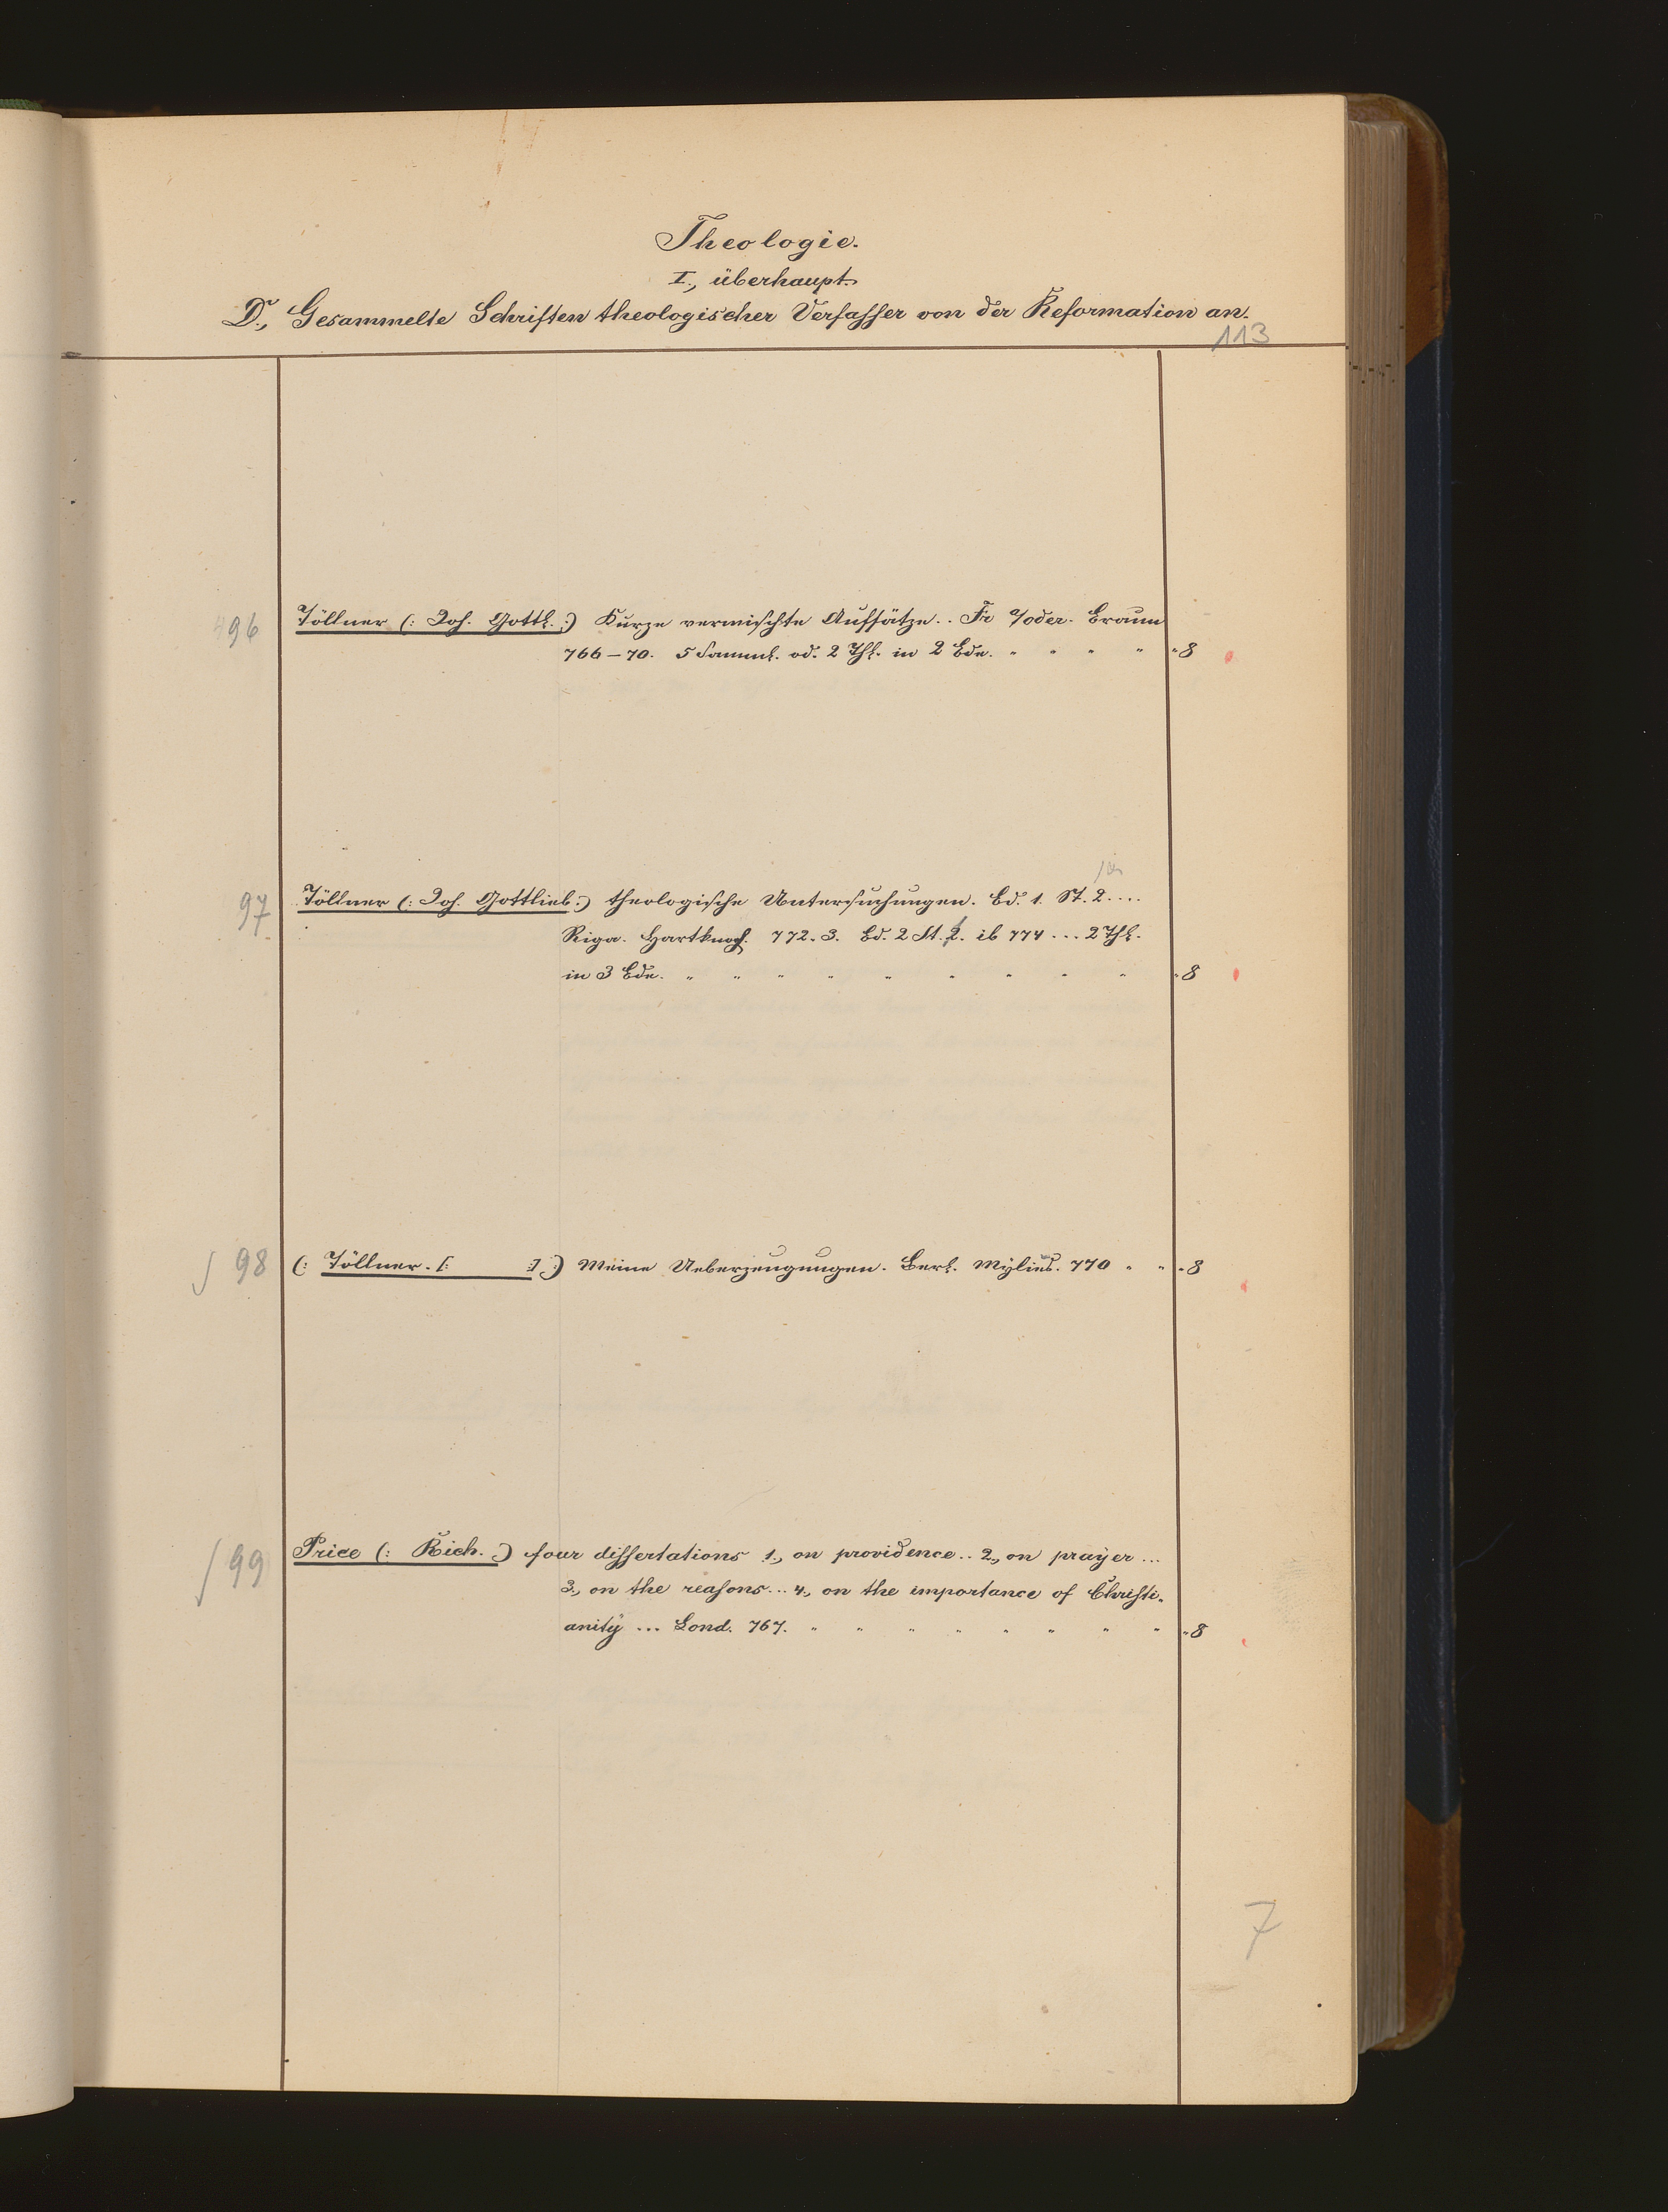 Theologie.
I., überhaupt.
D., Gesammelte Schriften theologischer Verfaſſer von der Reformation an.
113
496 Töllner (: Joh. Gottl. :) Kurze vermischte Aufsätze.. Fr a/oder. Braun
766–70. 5 Samml. od. 2 Thl. in 2 Bde. " " " " "8
97 Töllner (: Joh. Gottlieb :) theologische Untersuchungen. Bd. 1. St. 2....
Riga. Hartknoch. 772.3. Bd. 2 St. 2. ib 774 ... 2 Thl.
in 3 Bde. " " " " " " " " " "8
98 (: Töllner. [: :] :) Meine Ueberzeugungen. Berl. Mylius. 770 " " "8
99 Price (: Rich. :) four diſſertations 1., on providence.. 2., on prayer ...
3., on the reaſons... 4., on the importance of Chriſti-
anity ... Lond. 767. " " " " " " " " "8
7